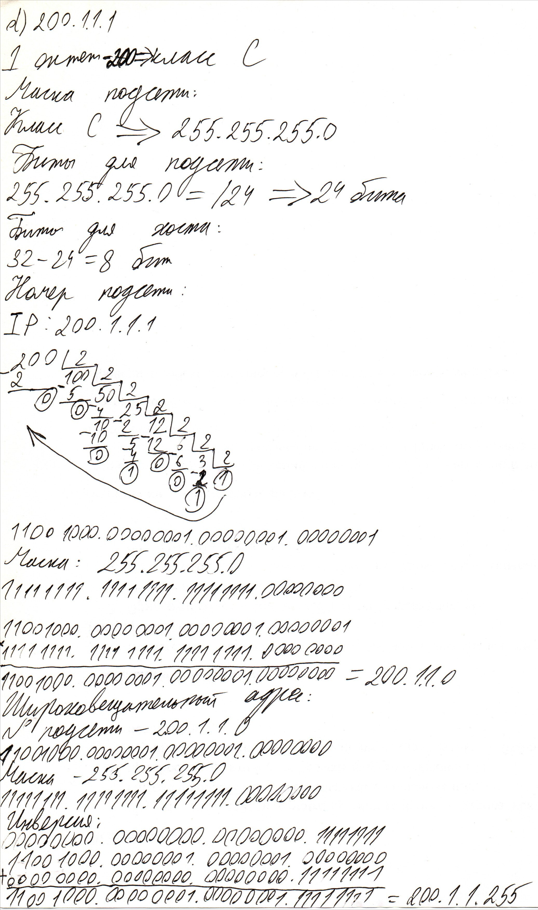 d) 200.1.1.1
1 октет -200=> класс C
Маска подсети:
Класс C => 255.255.255.0
Биты для подсети:
255.255.255.0 = /24 => 24 бита
Биты для хоста:
32-24=8 бит
Номер подсети:
IP: 200.1.1.1
200 2
2 100 2
0 5 50 2
0 4 25 2
10 2 12 2
10 5 12 6 2
0 4 0 6 3 2
1 0 2 1
1
11001000.00000001.00000001.00000001
Маска: 255.255.255.0
11111111.11111111.11111111.00000000
11001000.00000001.00000001.00000001
11111111.11111111.11111111.00000000
11001000.00000001.00000001.00000000 = 200.1.1.0
Широковещательный адрес:
№ подсети - 200.1.1.0
11001000.00000001.00000001.00000000
Маска - 255.255.255.0
11111111.11111111.11111111.00000000
Инверсия:
00000000.00000000.00000000.11111111
11001000.00000001.00000001.00000000
+00000000.00000000.00000000.11111111
11001000.00000001.00000001.11111111 = 200.1.1.255